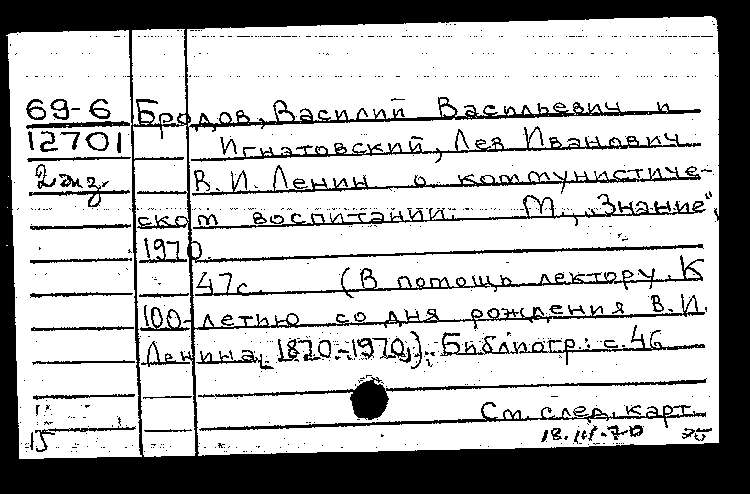 69-6 Бродов, Василий Васильевич и
12701 Игнатовский, Лев Иванович.
2 экз. В. И. Ленин о коммунистиче-
ском воспитании. М., „Знание",
1970.
47с. (В помощь лектору. К
100-летию со дня рождения В. И.
Ленина, 1870-1970,). Библиогр.: с. 46
См. след. карт.
15 18.III-70